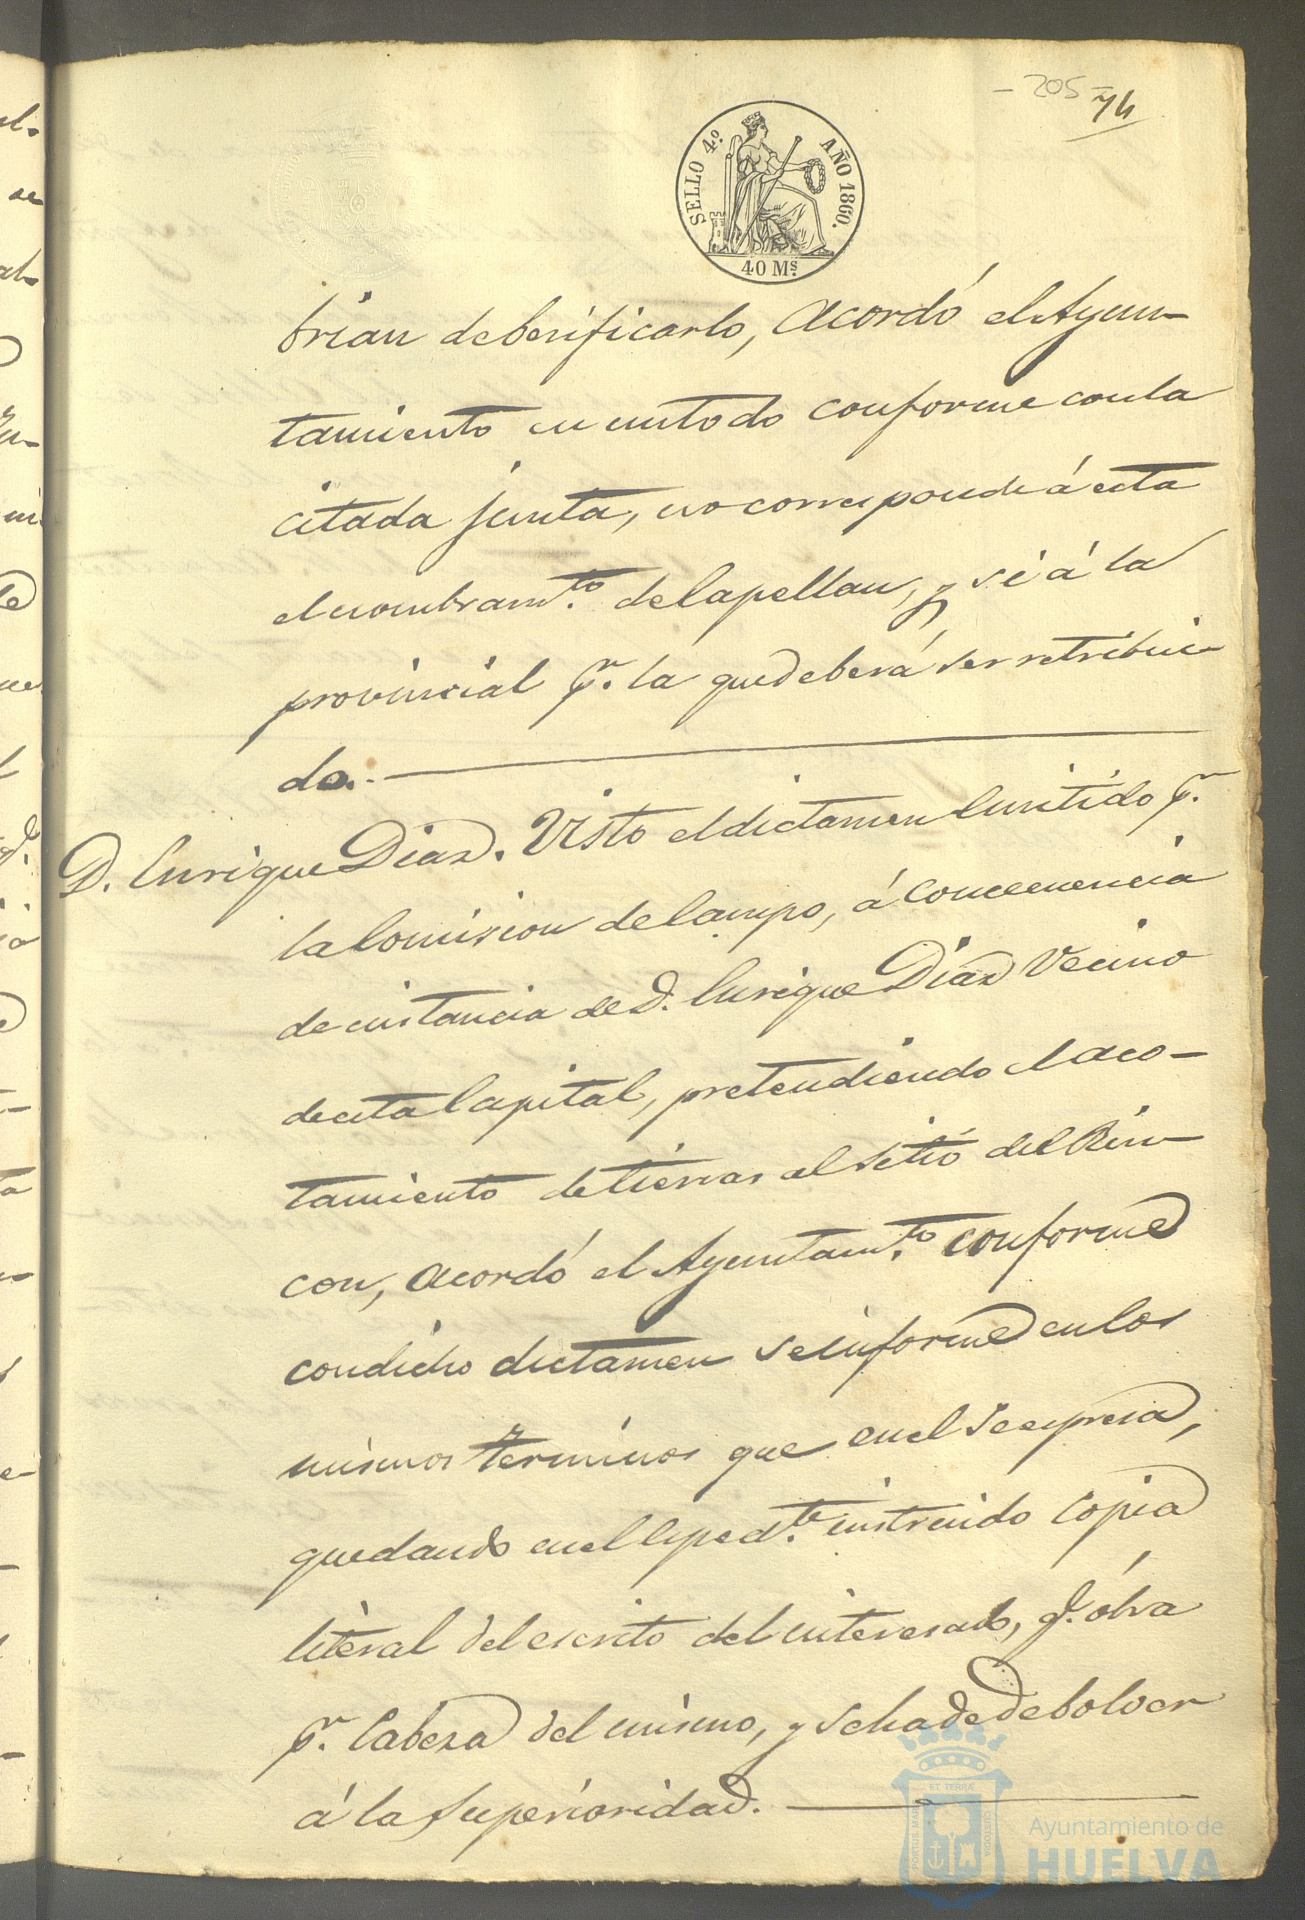 - 205 -
74
SELLO 4º AÑO 1860.
40 Mˢ.
brian deberificarlo, acordó el Ayun-
tamiento en un todo conforme con la
citada junta, no corresponde á esta
el nombramᵗᵒ. del Capellan, y si á la
provincial pʳ. la que deberá ser retribui-
do.
D. Enrique Diaz. Visto el dictamen emitido pʳ.
la Comision de Campo, á concecuencia
de instancia de D. Enrique Diaz Vecino
de esta Capital, pretendiendo el aco-
tamiento de tierras al sitió del Rin-
con, acordó el Ayuntamᵗᵒ. conforme
con dicho dictamen se informe en los
mismos términos que en el se espresa,
quedando en el Espedᵗᵉ. instruido Copia
literal del escrito del interesado, q. óbra
pʳ. Cabeza del mismo, y se ha de debolver
á la Superioridad.
PORTUS MARIS ET TERRÆ CUSTODIA
Ayuntamiento de
HUELVA